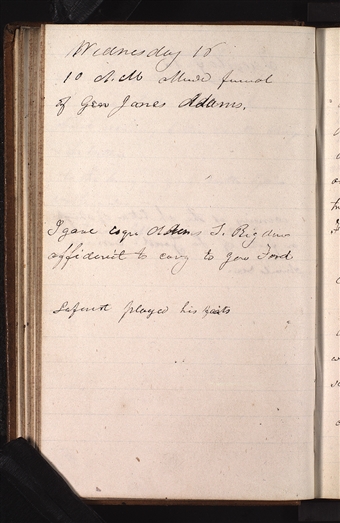 Wednesday 15
10 A.M funeral
of Gen James Adams.
I gave esqr Adams S. Rigdons
affidavit to carry to gov Ford
played his